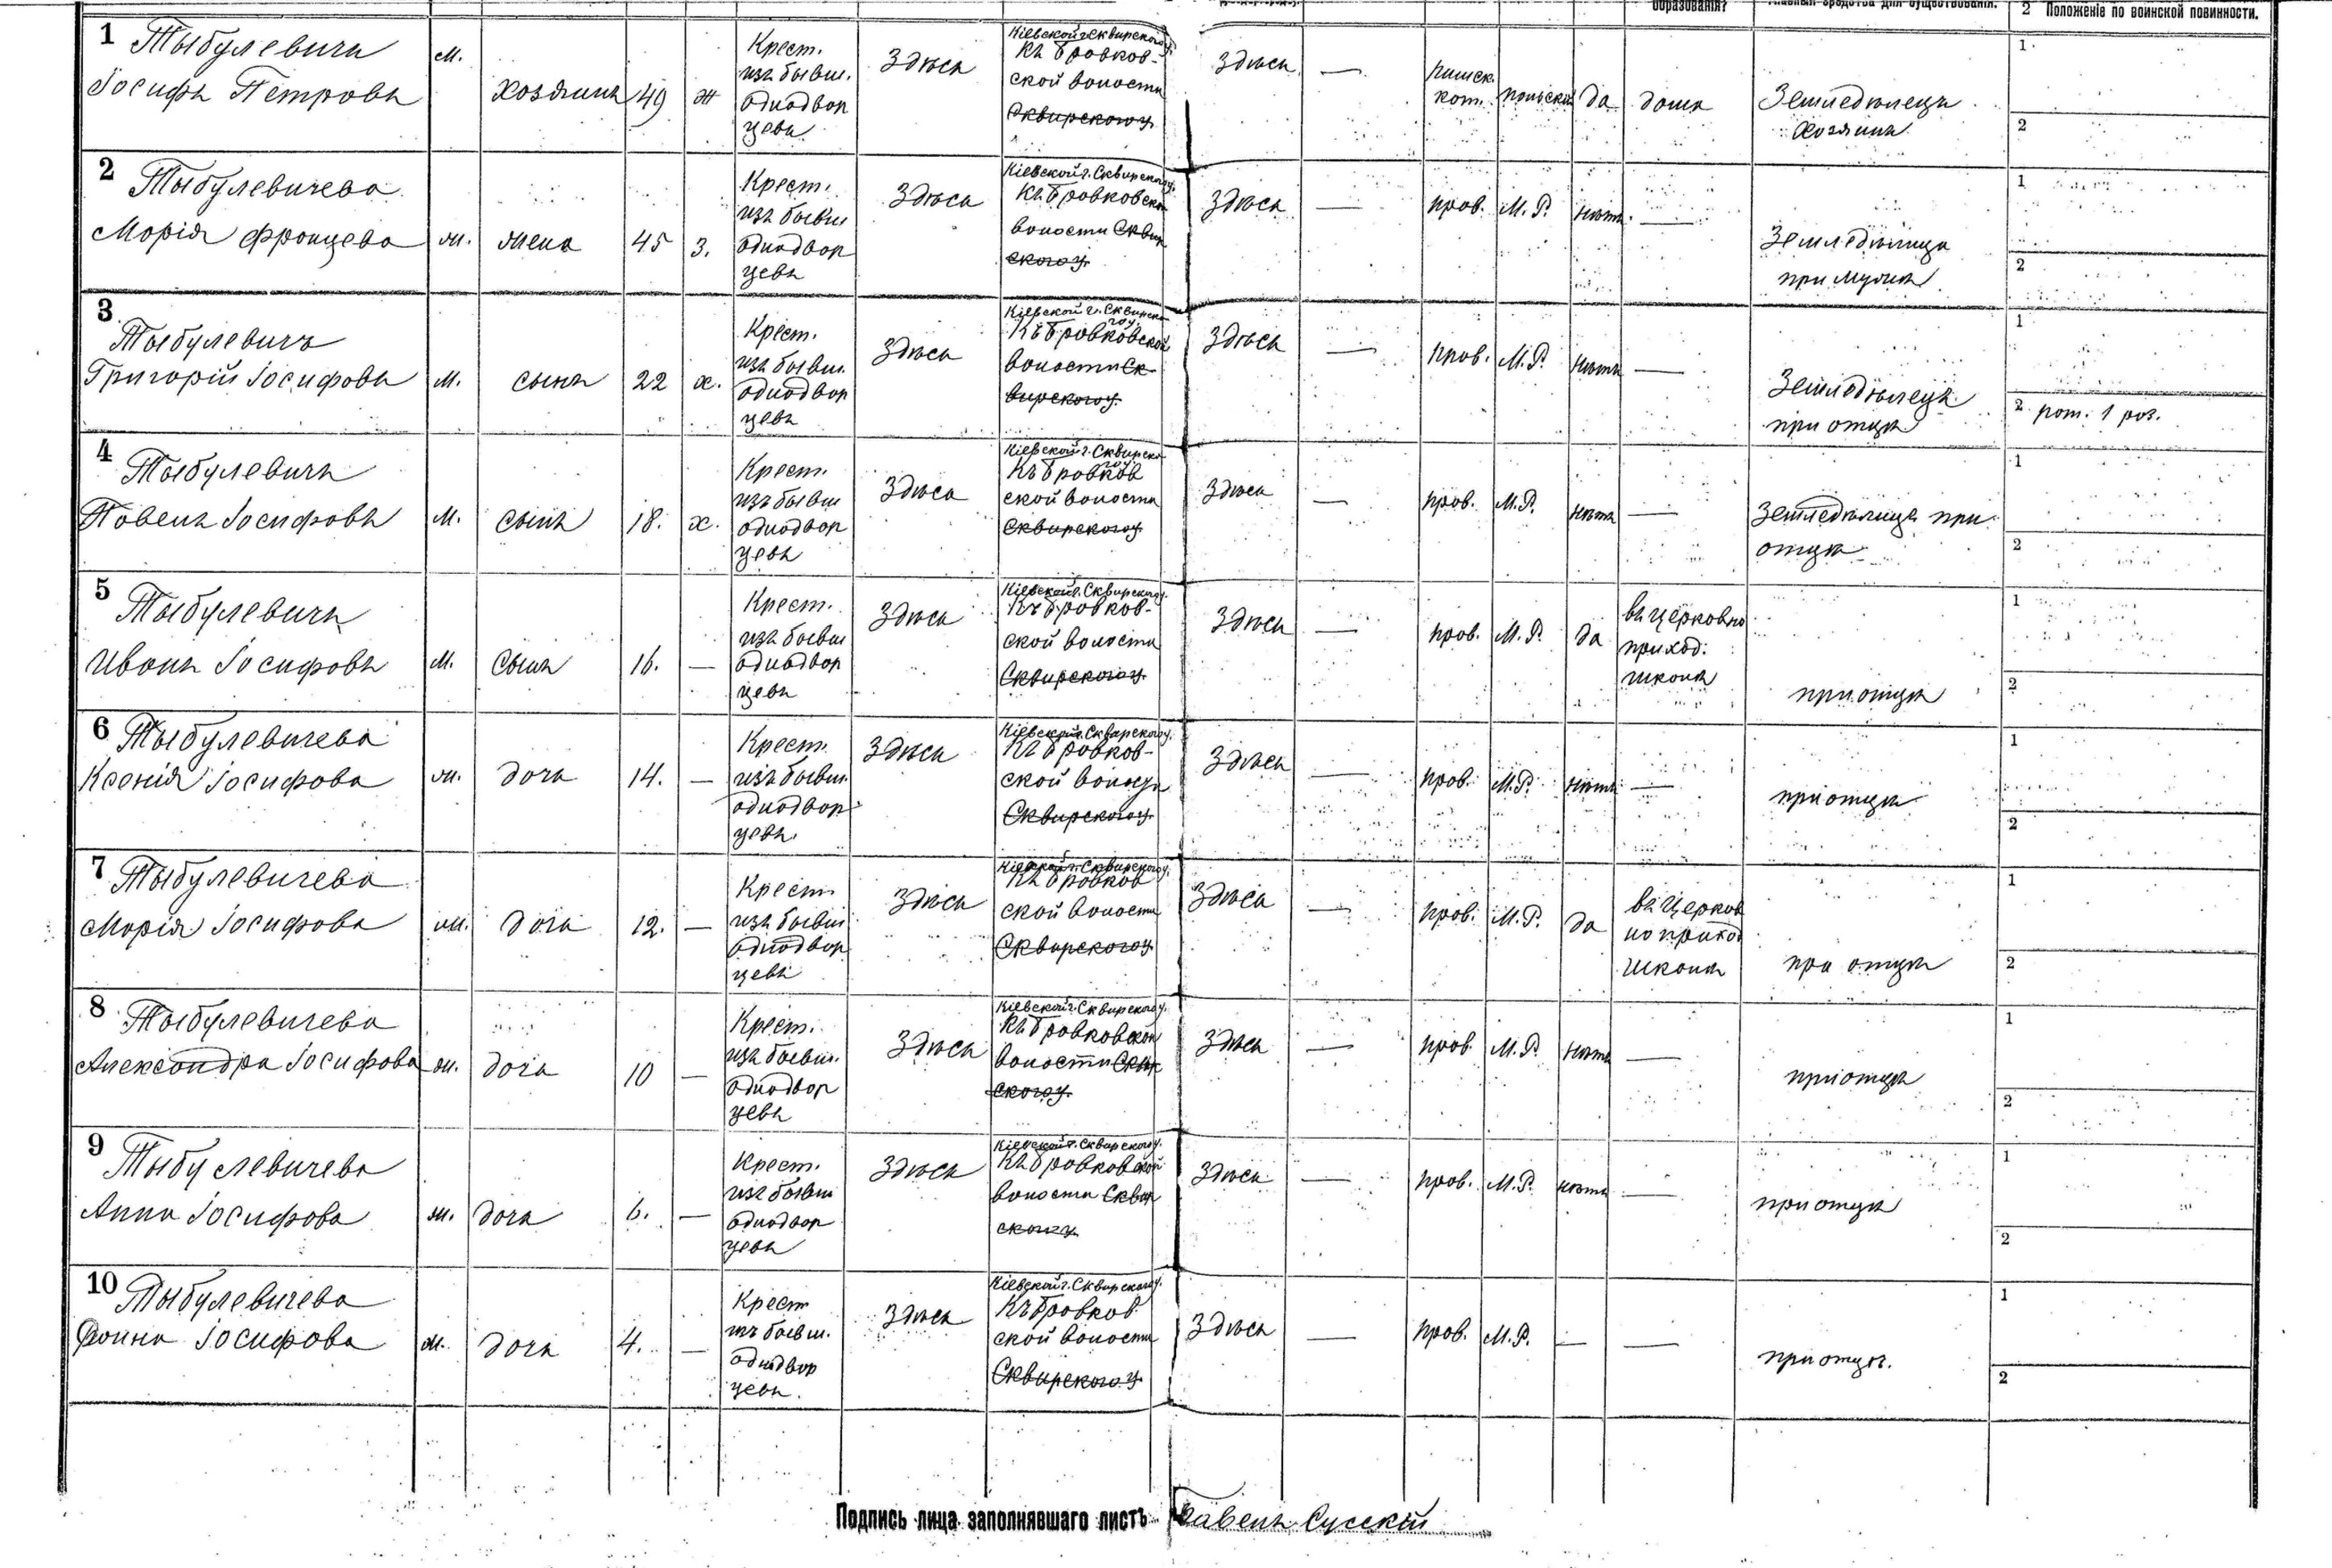 образованія? главныя средства для существованія. 2 Положеніе по воинской повинности.
1 Тыбулевичъ
Іосифъ Петровъ
м.
хозяинъ
49
ж
Крест.
изъ бывш.
однодвор
цевъ
Здѣсь
Кіевской г. Сквирского у.
Къ Бровков-
ской волости
Сквирского у.
Здѣсь
—
римск.
кат.
польскій
да
дома
Земледѣлецъ
хозяинъ
1
2
2 Тыбулевичева
Марія Францева
ж.
жена
45
з.
Крест.
изъ бывш
однодвор
цевъ
Здѣсь
Кіевской г. Сквирского у.
Къ Бровковской
волости Сквир
ского у.
Здѣсь
—
прав.
М. Р.
нѣтъ
—
Земледѣлица
при мужѣ
1
2
3
Тыбулевичъ
Григорій Іосифовъ
м.
сынъ
22
х.
Крест.
изъ бывш.
однодвор
цевъ
Здѣсь
Кіевской г. Сквирско
го у.
Къ Бровковской
волости Ск
вирского у.
Здѣсь
—
прав.
М. Р.
нѣтъ
—
Земледѣлецъ
при отцѣ
1
2 рат. 1 раз.
4
Тыбулевичъ
Павелъ Іосифовъ
м.
сынъ
18.
х.
Крест.
изъ бывш
однодвор
цевъ
Здѣсь
Кіевской г. Сквирско
го у.
Къ Бровков
ской волости
Сквирского у.
Здѣсь
—
прав.
М. Р.
нѣтъ
—
при
отцѣ
1
2
5
Тыбулевичъ
Иванъ Іосифовъ
м.
сынъ
16.
—
Крест.
изъ бывш
однодвор
цевъ
Здѣсь
Кіевской г. Сквирского у.
Къ Бровков-
ской волости
Сквирского у.
Здѣсь
—
прав.
М. Р.
да
въ церковно
приход.
школѣ
при отцѣ
1
2
6 Тыбулевичева
Ксенія Іосифова
ж.
дочь
14.
—
Крест.
изъ бывш.
однодвор
цевъ.
Здѣсь
Кіевской г. Сквирского у.
Къ Бровков-
ской
Сквирского у.
Здѣсь
—
прав.
М. Р.
нѣтъ
—
при отцѣ
1
2
7 Тыбулевичева
Марія Іосифова
ж.
дочь
12.
—
Крест.
изъ бывш
однодвор
цевъ
Здѣсь
Кіевской г. Сквирского у.
Къ Бровков
ской волости
Сквирского у.
Здѣсь
—
прав.
М. Р.
да
въ церков
но приход
школѣ
при отцѣ
1
2
8 Тыбулевичева
Александра Іосифова
ж.
дочь
10
—
Крест.
изъ бывш.
однодвор
цевъ
Здѣсь
Кіевской г. Сквирского у.
Къ Бровковской
волости Сквир
ского у.
Здѣсь
—
прав.
М. Р.
нѣтъ
—
при отцѣ
1
2
9
Тыбулевичева
Анна Іосифова
ж.
дочь
6.
—
Крест.
изъ бывш
однодвор
цевъ
Здѣсь
Кіевской г. Сквирского у.
Къ Бровковской
волости Сквир
ского у.
Здѣсь
—
прав.
М. Р.
нѣтъ
—
при отцѣ
1
2
10 Тыбулевичева
Фаина Іосифова
ж.
дочь
4.
—
Крест
изъ бывш.
однодвор
цевъ.
Здѣсь
Кіевской г. Сквирского у.
Къ Бровков
ской волости
Сквирского у.
Здѣсь
—
прав.
М. Р.
—
—
при отцѣ.
1
2
Подпись лица заполнявшаго листъ Павелъ Сусскій